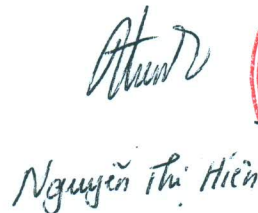 Nguyễn Thị Hiên